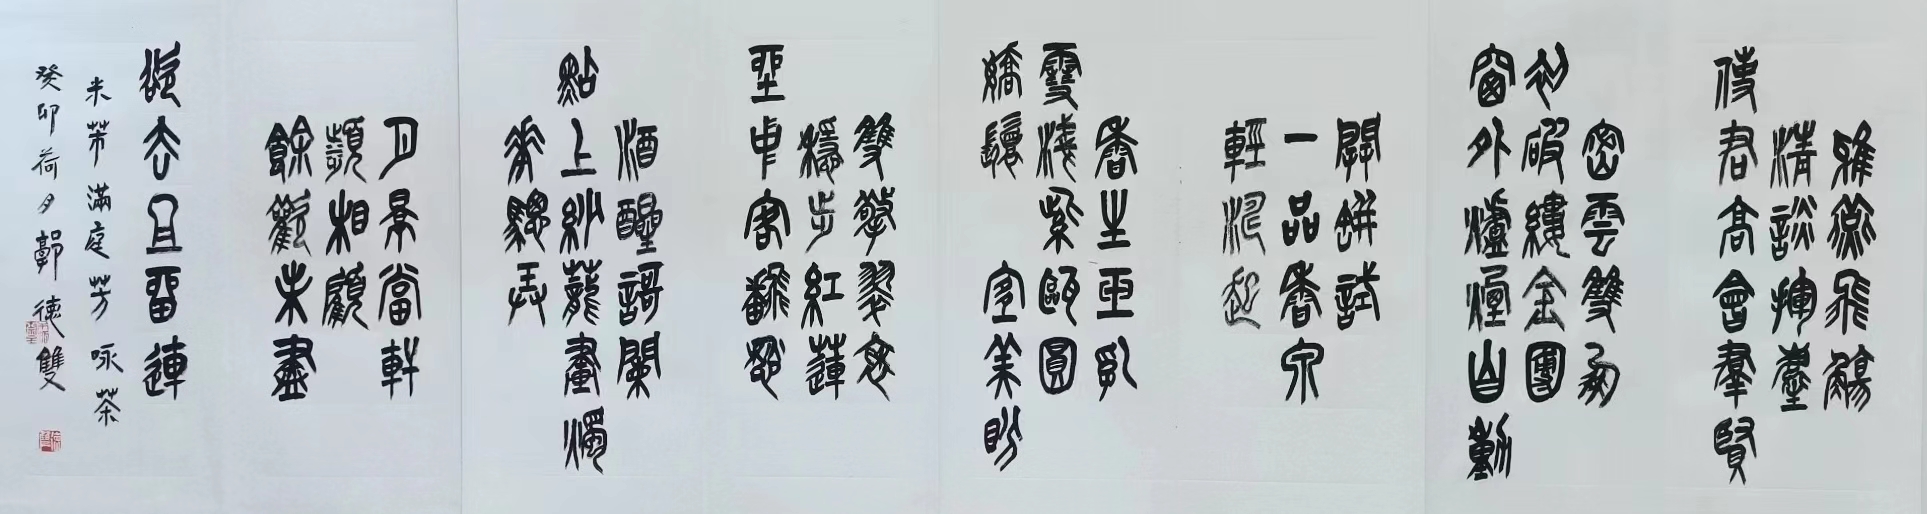 雅燕飛觴
清談揮麈
使君高會羣賢
密雲雙鳳
初破縷金團
窗外爐煙自動
開缾試
一品香泉
輕濤起
香生玉乳
雪濺紫甌圓
嬌鬟 宜美盼
雙擎翠袖
穩步紅蓮
座中客翻愁
酒醒謌闌
點上紗籠畫燭
花驄弄
月影當軒
頻相顧
餘歡未盡
欲去且留連
米芾滿庭芳 咏茶
癸卯荷月郭德雙